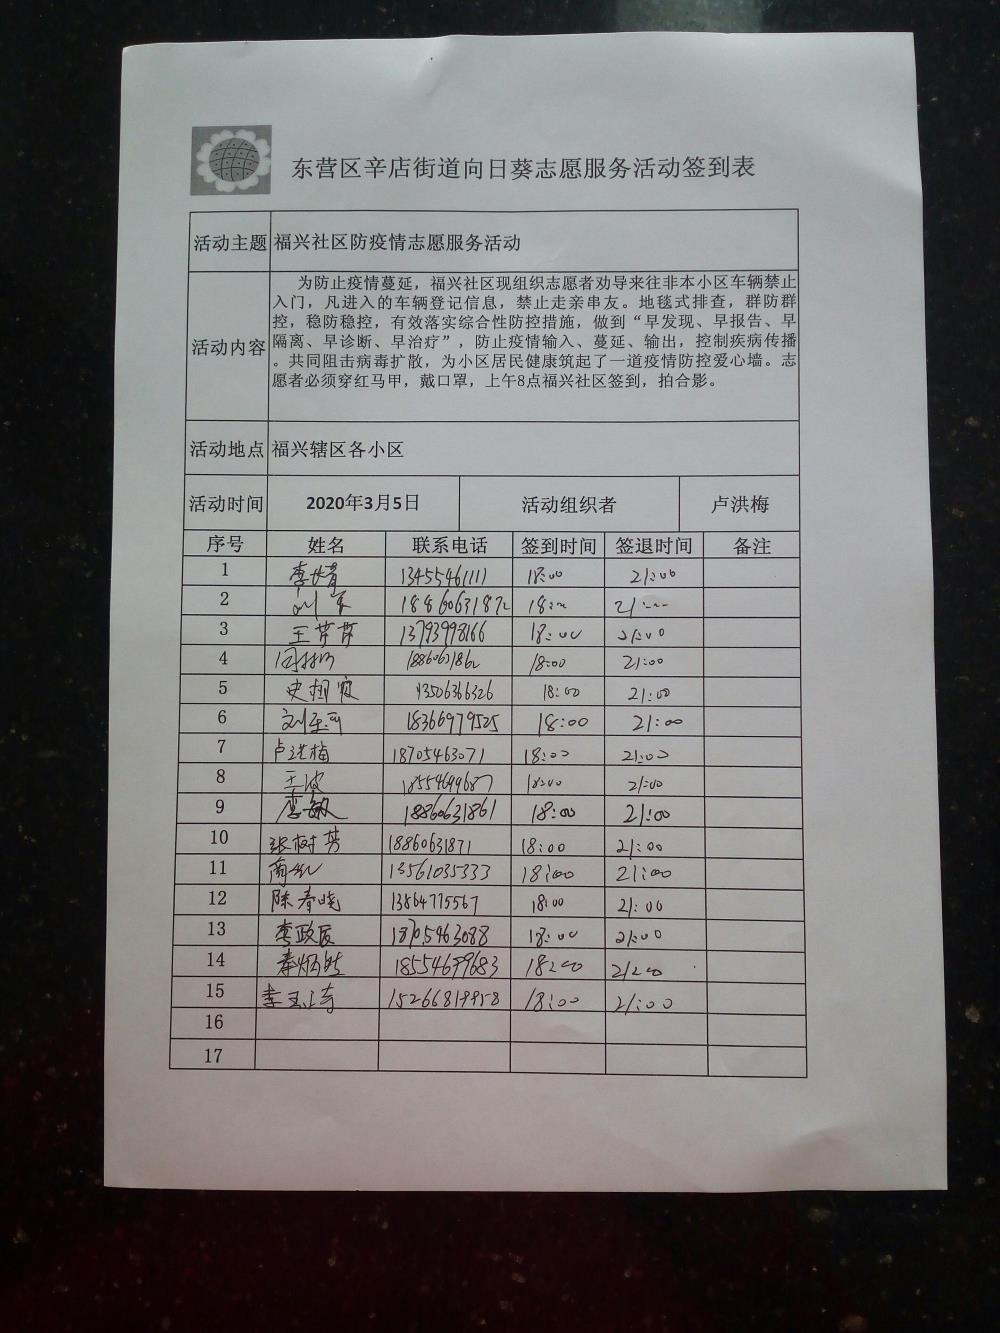 东营区辛店街道向日葵志愿服务活动签到表
活动主题 福兴社区防疫情志愿服务活动
活动内容
为防止疫情蔓延，福兴社区现组织志愿者劝导来往非本小区车辆禁止
入门，凡进入的车辆登记信息，禁止走亲串友。地毯式排查，群防群
控，稳防稳控，有效落实综合性防控措施，做到“早发现、早报告、早
隔离、早诊断、早治疗”，防止疫情输入、蔓延、输出，控制疾病传播
。共同阻击病毒扩散，为小区居民健康筑起了一道疫情防控爱心墙。志
愿者必须穿红马甲，戴口罩，上午8点福兴社区签到，拍合影。
活动地点 福兴辖区各小区
活动时间 2020年3月5日 活动组织者 卢洪梅
序号 姓名 联系电话 签到时间 签退时间 备注
1 13455461111 18:00 21:00
2 18860631872
3 王芹芹 13793998166 18:00 21:00
4 18860631862 18:00 21:00
5 13506366326 18:00 21:00
6 18366979525 18:00 21:00
7 卢洪梅 18705463071 18:00 21:00
8 王波 18554699687 18:00 21:00
9 李敏 18860631861 18:00 21:00
10 张树芳 18860631871 18:00 21:00
11 13561035333 18:00 21:00
12 陈春晓 13864775567 18:00 21:00
13 李政辰 18705463088 18:00 21:00
14 18554699683 18:00 21:00
15 18:00 21:00
16
17